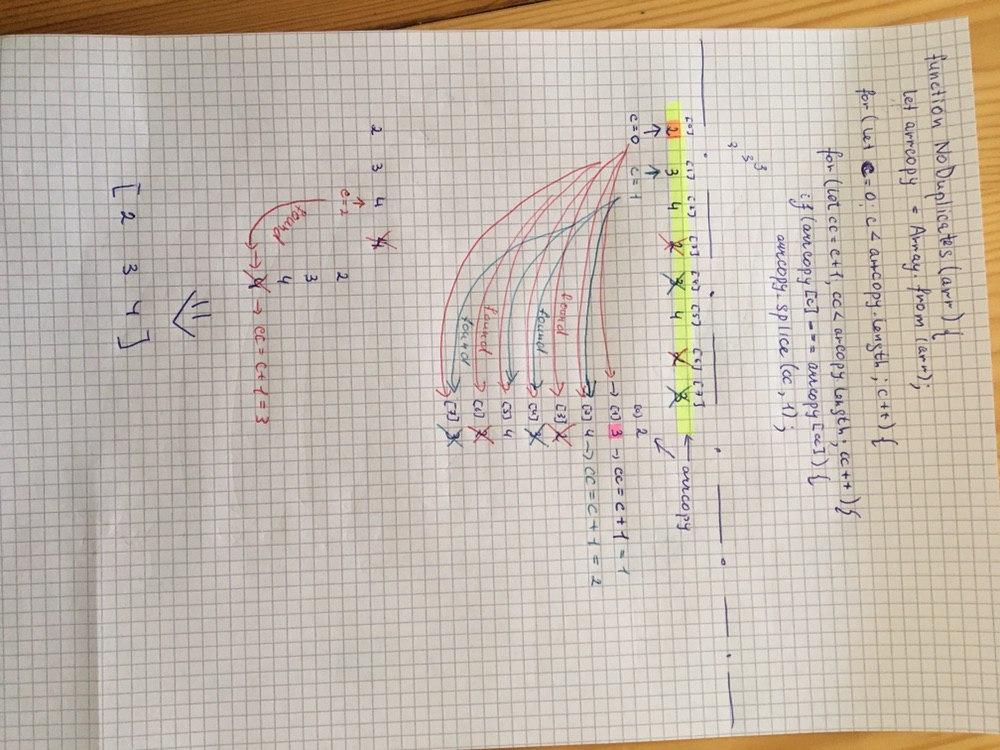 function NoDuplicates (arr) {
let arrcopy = Array.from (arr);
for (let c = 0; c < arrcopy.length; c++) {
for (let cc = c+1; cc < arcopy.length; cc++) {
if (arrcopy [c] === arrcopy [cc]) {
arrcopy.splice (cc, 1);
3 3 3
[0] [1] [2] [3] [4] [5] [6] [7]
2 3 4 2 3 4 2 3 ← arrcopy
↑ ↑
c=0 c=1
[0] 2
→ [1] 3 → cc = c + 1 = 1
[2] 4 → cc = c + 1 = 2
found [3] 2
found [4] 3
[5] 4
found [6] 2
found [7] 3
2 3 4 4
↑
c=2
2
3
4
found → 4 → cc = c + 1 = 3
[ 2 3 4 ]